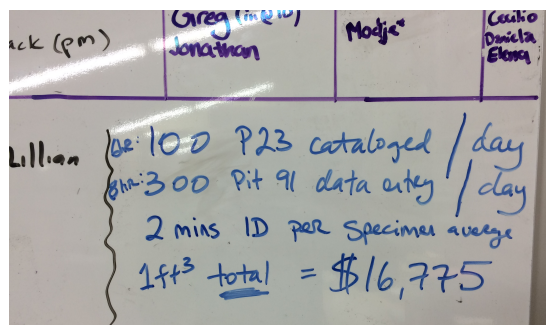 ack (pm)
Greg (in@10)
Jonathan
Modje*
Cecilio
Daniela
Elena
Lillian
6hr: 100 P23 cataloged / day
8hr: 300 Pit 91 data entry / day
2 mins ID per Specimen average
1ft³ total = $16,775